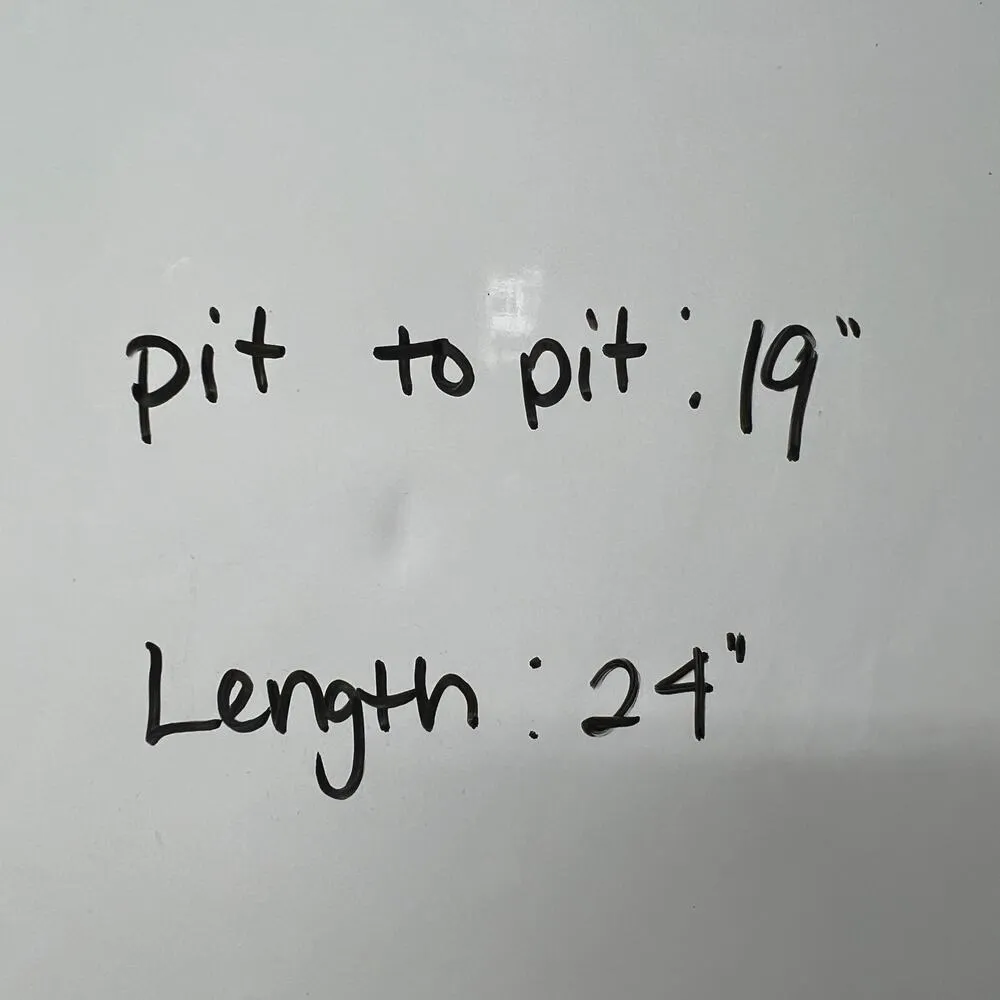 pit to pit : 19"
Length : 24"